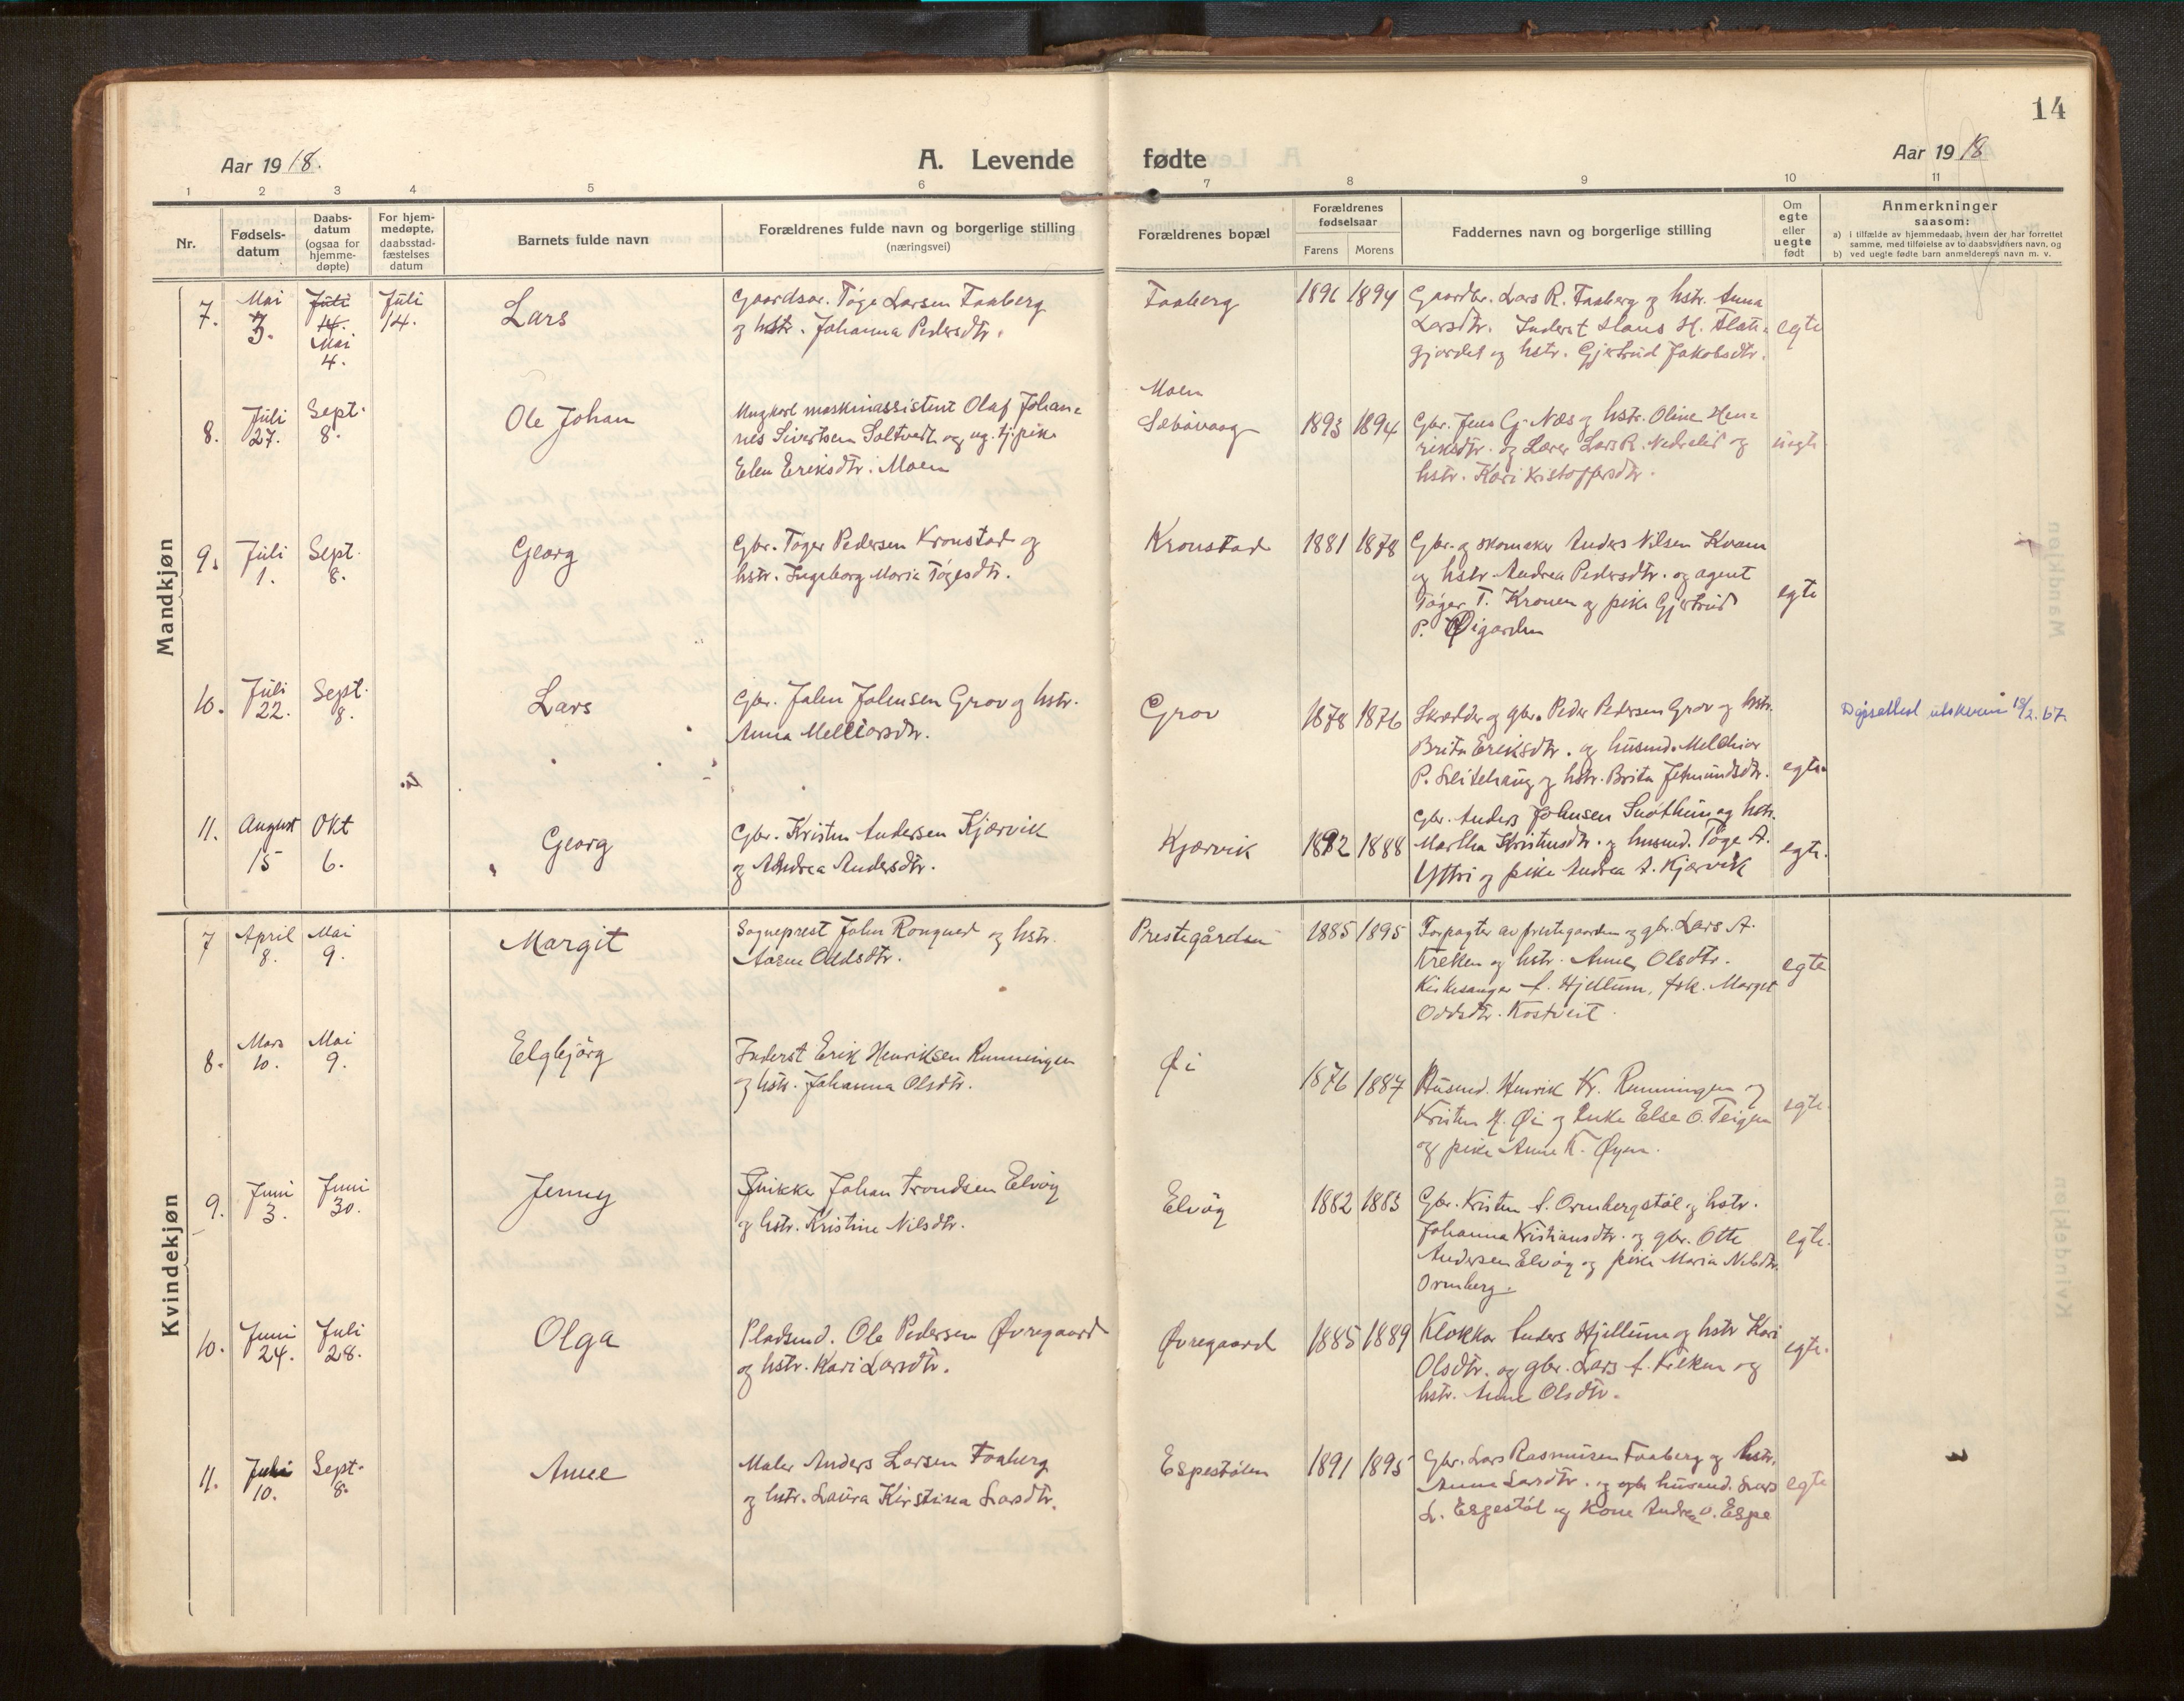 14
Aar 1918.
A. Levende fødte
Aar 1918
1 2 3 4 5 6 7 8 9 10 11
Nr.
Fødsels-
datum
Daabs-
datum
(ogsaa for
hjemme-
døpte)
For hjem-
medøpte,
daabsstad-
fæstelses
datum
Barnets fulde navn
Forældrenes fulde navn og borgerlige stilling
(næringsvei)
Forældrenes bopæl
Forældrenes
fødselsaar
Farens Morens
Faddernes navn og borgerlige stilling
Om
egte
eller
uegte
født
Anmerkninger
saasom:
a) i tilfælde av hjemmedaab, hvem der har forrettet
samme, med tilføielse av to daabsvidners navn, og
b) ved uegte fødte barn anmelderens navn m. v.
Mandkjøn
7. Mai 3. Juli 14. Mai 4. Juli 14. Lars
Gaardsar. Tøge Larsen Faaberg
og hstr. Johanna Pedersdtr.
Faaberg 1896 1894
Gaardbr. Lars R. Faaberg og hstr. Anna
Larsdtr. Inderst Hans H. Flati-
gjerdet og hstr. Gjertrud Jakobsdtr.
egte
8. Juli 27. Sept. 8. Ole Johan
Ungkarl maskinassistent Olaf Johan-
nes Sivertsen Soltvedt og ug. tj.pike
Elen Eriksdtr. Moen
Moen
Sæbøvaag 1893 1894
Gbr. Jens G. Næs og hstr. Oline Hen-
riksdtr. og Lærer Lars R. Nedrelid og
hstr. Kari Kristoffersdtr.
uegte
9. Juli 1. Sept. 8. Georg
Gbr. Tøger Pedersen Kronstad og
hstr. Ingeborg Maria Tøgesdtr.
Kronstad 1881 1878
Gbr. og skomaker Anders Nilsen Kvam
og hstr Andrea Pedersdtr. og agent
Tøger T. Kronen og pike Gjertrud
P. Øigarden
egte
10. Juli 22. Sept. 8. Lars
Gbr. John Johnsen Grov og hstr.
Anna Melkiorsdtr.
Grov 1878 1876
Skrædder og gbr. Peder Pedersen Grov og hstr.
Brita Eriksdtr. og husmd. Melchior
P. Sleitehaug og hstr. Brita Jetmundsdtr.
egte.
Dåpsattest utskrevet 18/2. 67.
11. August 15 Okt 6. Georg
Gbr. Kristen Andersen Kjørvik
og Andrea Andersdtr.
Kjørvik 1892 1888
Gbr. Anders Johnsen Snøthun og hstr.
Martha Kristensdtr. og husmd. Tøge A.
Yttri og pike Andrea A. Kjørvik
egte.
Kvindekjøn
7 April 8. Mai 9. Margit
Sogneprest John Rongved og hstr.
Aasne Oddsdtr.
Prestegården 1885 1895
Forpagter av prestegaarden og gbr. Lars A.
Kreken og hstr. Anne Olsdtr.
Kirkesanger A. Hjellum, frk. Marget
Oddsdtr. Kostveit.
egte
8. Mars 10. Mai 9. Elgbjørg
Inderst Erik Henriksen Runningen
og hstr. Johanna Olsdtr.
Øi 1876 1887
Husmd. Henrik Kr. Runningen og
Kristen H. Øi og Enke Else O. Teigen
og pike Anne K. Øyen.
egte.
9. Juni 3. Juni 30. Jenny
Snikker Johan Trondsen Elvøy
og hstr. Kristine Nilsdtr.
Elvøy 1882 1883
Gbr. Kristen A. Ormbergstøl og hstr.
Johanna Kristiansdtr. og gbr. Otte
Andersen Elvøy og pike Maria Nilsdtr.
Ormberg.
egte.
10. Juni 24. Juli 28. Olga
Pladsmd. Ole Pedersen Øvregaard
og hstr. Kari Larsdtr.
Øvregaard 1885 1889
Klokkar Anders Hjellum og hstr Kari
Olsdtr. og gbr. Lars A. Kreken og
hstr. Anne Olsdtr.
egte.
11. Juli 10. Sept. 8. Anne
Maler Anders Larsen Faaberg
og hstr. Laura Kirstina Larsdtr.
Espestølen 1891 1895
Gbr. Lars Rasmusen Faaberg og hstr.
Anna Larsdtr. og husmd. Lars
L. Espestøl og Kone Andrea O. Espe
egte